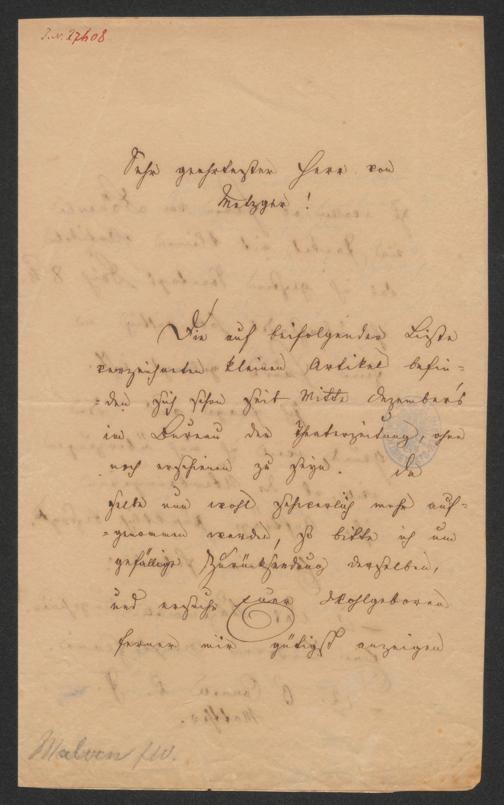 J.N. 27608
Sehr geehrtester Herr von
Metzger!
Die auf beifolgender Liste
verzeichneten kleinen Artikel befin=
=den sich schon seit Mitte Dezember's
im Bureau der Theaterzeitung, ohne
noch erschienen zu seyn. Da
selbe nun wohl schwerlich mehr auf=
=genommen werden, so bitte ich um
gefällige Zurücksendung derselben,
und ersuche Euer Wohlgeboren
ferner mir gütigst anzeigen